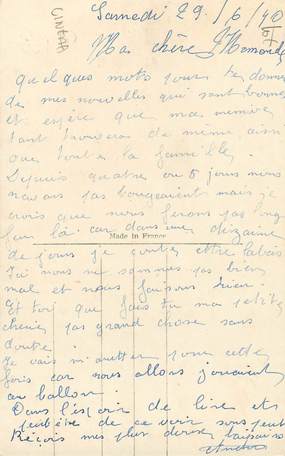 CINTRA
Samedi 29/6/40
Ma chère Mamande
Quelques mots pour te donner
de mes nouvelles qui sont bonnes
et espère que ma mienne
tant trouveras de meme ainsi
que toute la famille.
Depuis quatre ou 5 jours nous
navons pas bougeaient mais je
crois que nous serons pas long
par là car dans une dizaine
Made in France
de jours je conte etre labas
Ici nous ne sommes pas bien
mal et nous faisons rien.
Et toi que fais tu ma petite
cherie pas grand chose sans
doute.
Je vais m'quitter pour cette
fois car nous allons jouaient
au ballon.
Dans l'espoir de lire et
peut être de ce voir sous peut
Reçois mes plus doux baisers